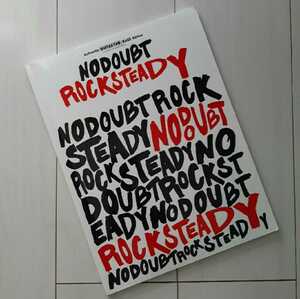 Authentic GUITAR-TAB Edition
NODOUBT
ROCKSTEADY
NODOUBTROCK
STEADYNODOUBT
ROCKSTEADYNO
DOUBTROCKST
EADYNODOUBT
ROCKSTEADY
NODOUBTROCKSTEADY